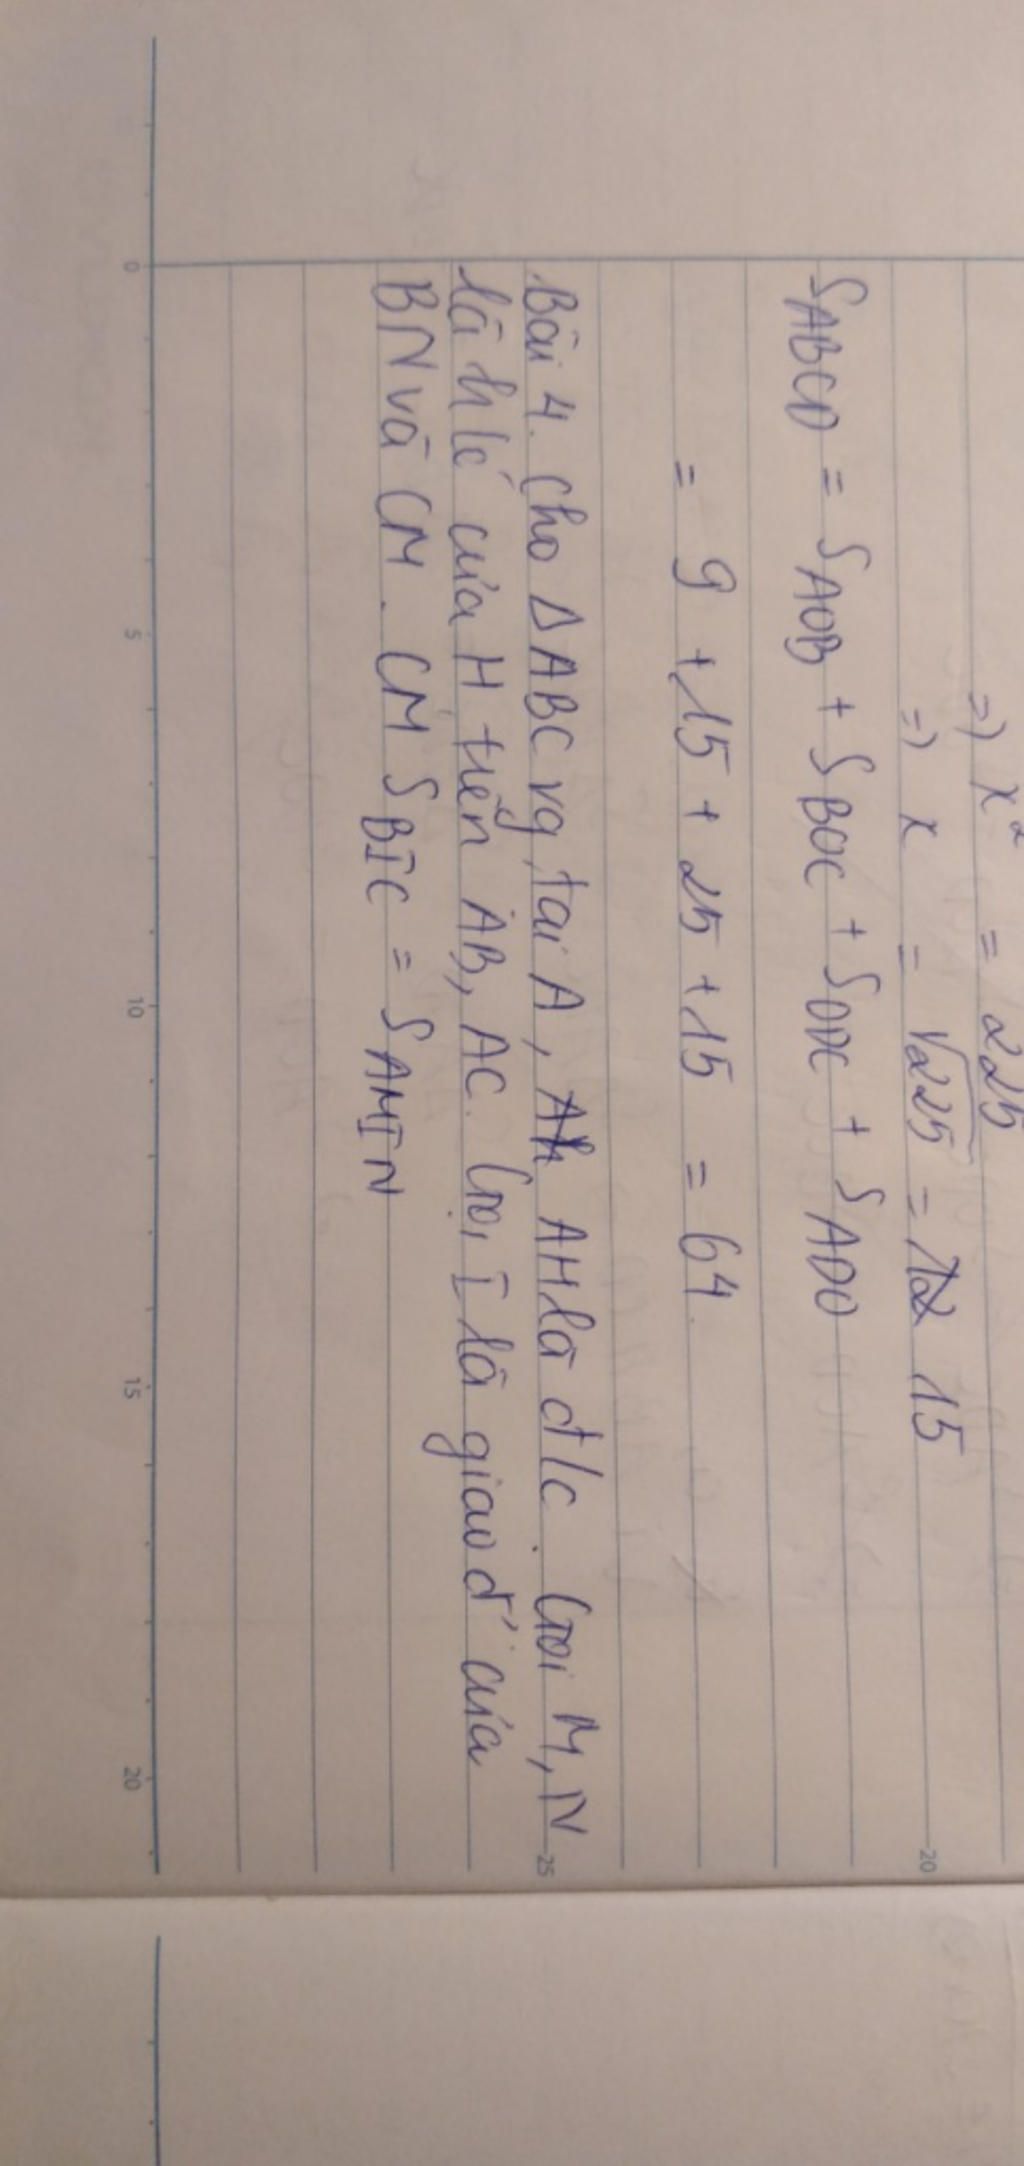 =) x² = 225
=) x = √225 = 15
S ABCD = S AOB + S BOC + S ODC + S ADO
= 9 + 15 + 25 + 15 = 64.
Bài 4. Cho Δ ABC vg tại A, AH là đ/c. Gọi M, N
là h/c của H trên AB, AC. Gọi I là giao đ' của
BN và CM. CM S BIC = S AMIN
20
25
0 5 10 15 20